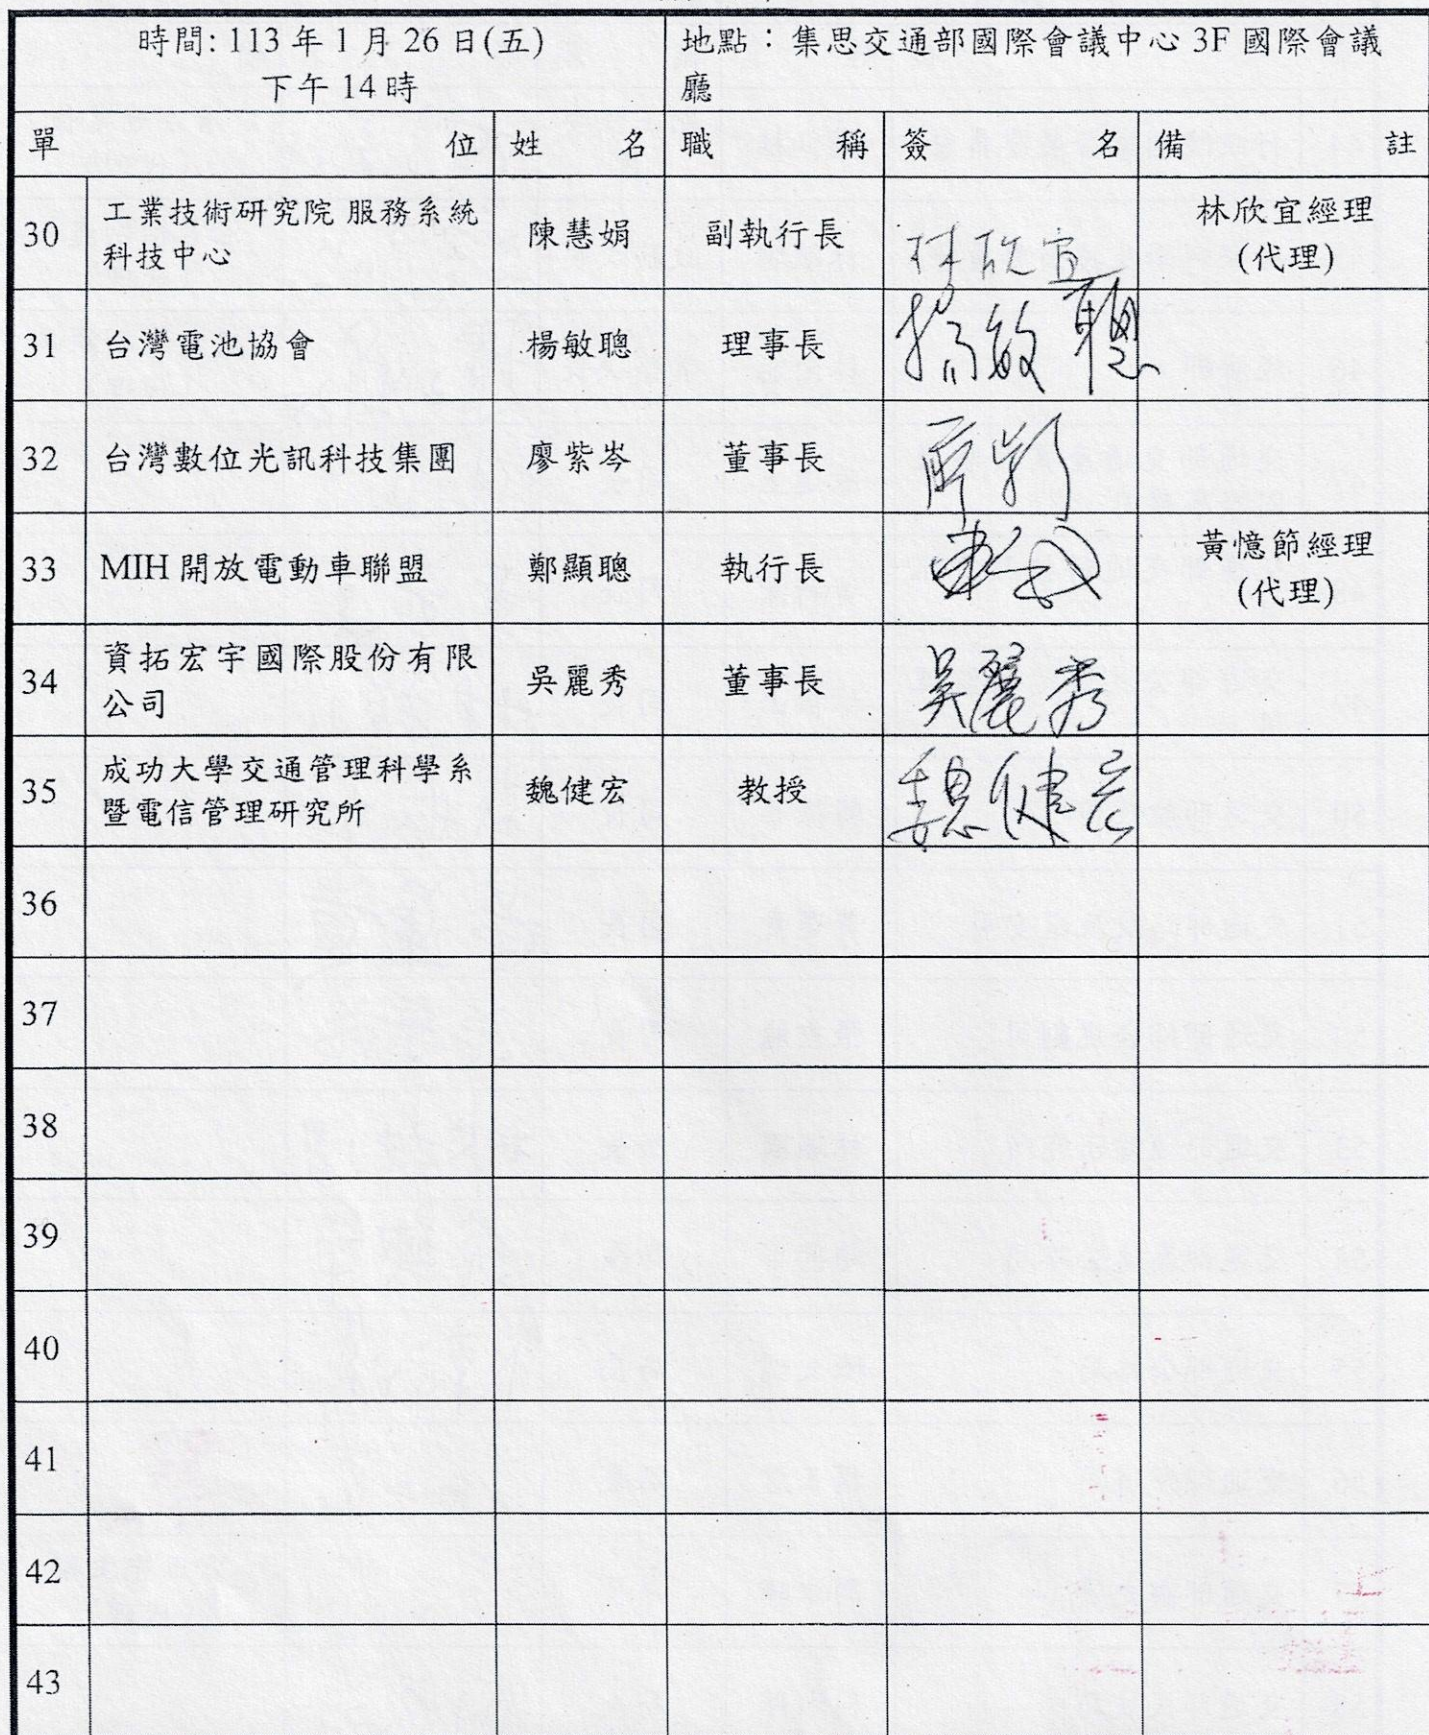 時間: 113 年 1 月 26 日(五)
下午 14 時
地點：集思交通部國際會議中心 3F 國際會議
廳
單位 姓名 職稱 簽名 備註
30 工業技術研究院 服務系統
科技中心
陳慧娟 副執行長 林欣宜 林欣宜經理
(代理)
31 台灣電池協會 楊敏聰 理事長 楊敏聰
32 台灣數位光訊科技集團 廖紫岑 董事長
33 MIH 開放電動車聯盟 鄭顯聰 執行長 黃憶節經理
(代理)
34 資拓宏宇國際股份有限
公司
吳麗秀 董事長 吳麗秀
35 成功大學交通管理科學系
暨電信管理研究所
魏健宏 教授 魏健宏
36
37
38
39
40
41
42
43